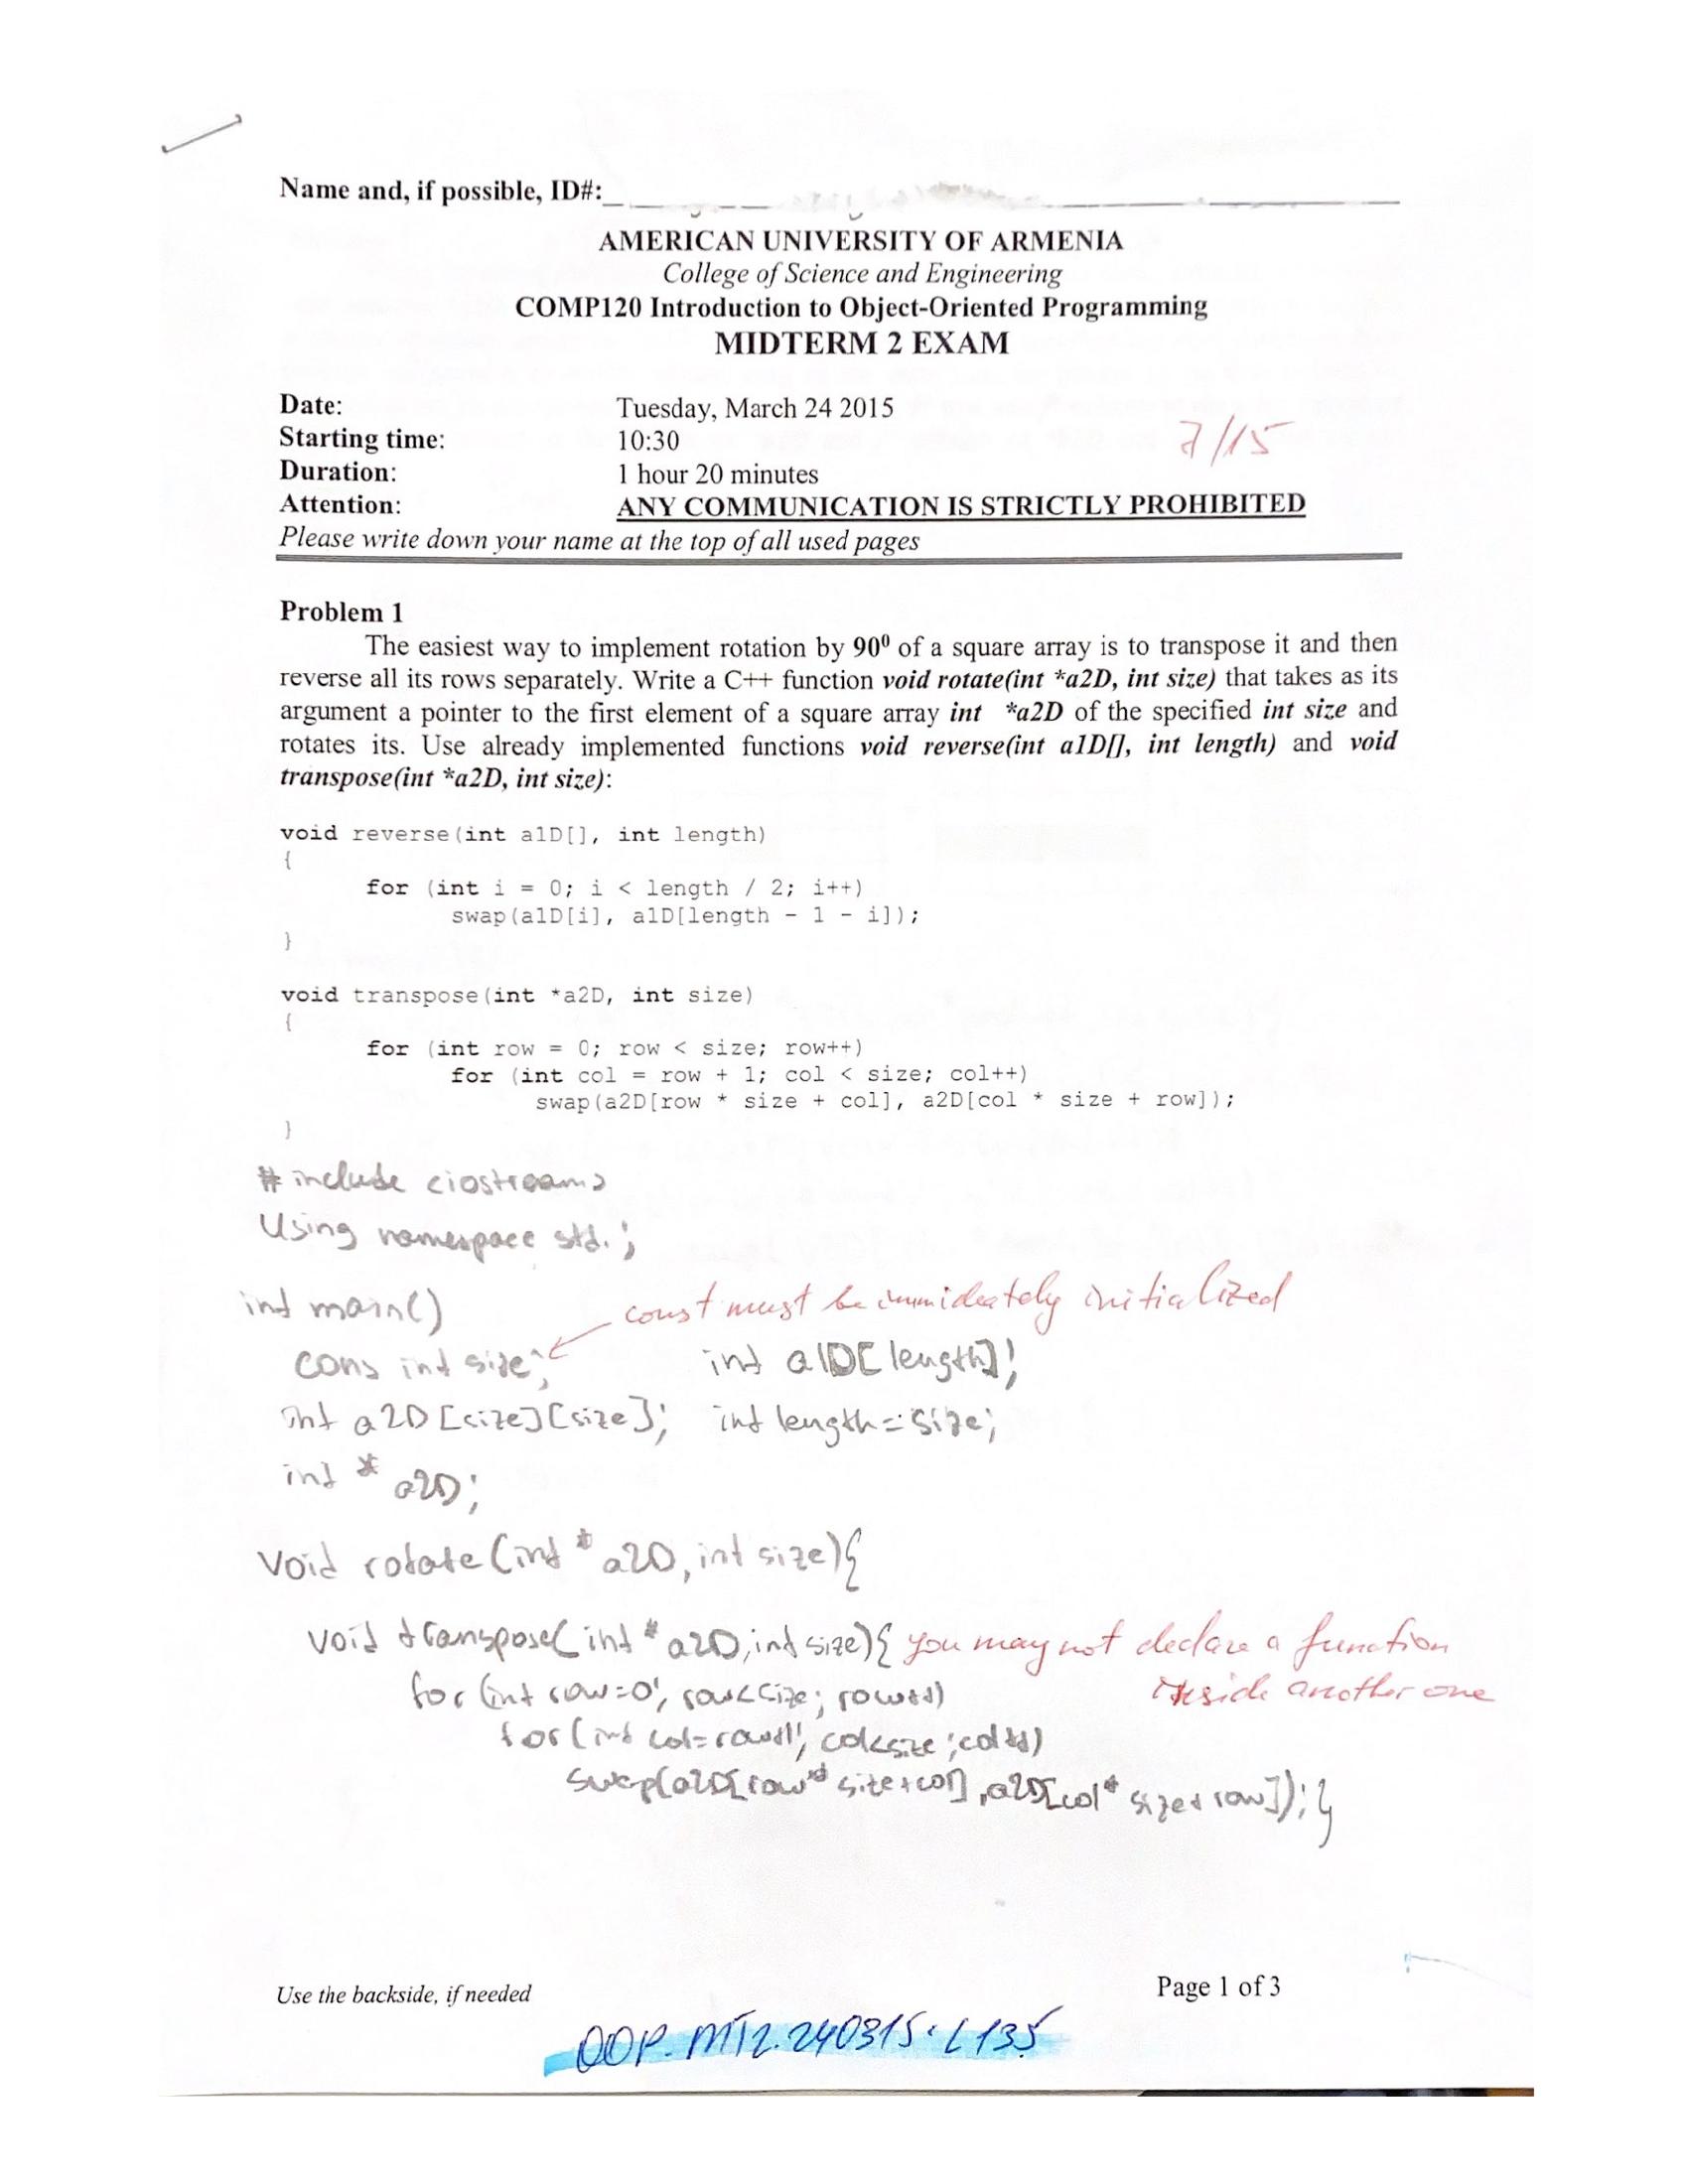 Name and, if possible, ID#:
AMERICAN UNIVERSITY OF ARMENIA
College of Science and Engineering
COMP120 Introduction to Object-Oriented Programming
MIDTERM 2 EXAM
Date: Tuesday, March 24 2015
Starting time: 10:30
7/15
Duration: 1 hour 20 minutes
Attention: ANY COMMUNICATION IS STRICTLY PROHIBITED
Please write down your name at the top of all used pages
Problem 1
The easiest way to implement rotation by 90⁰ of a square array is to transpose it and then
reverse all its rows separately. Write a C++ function void rotate(int *a2D, int size) that takes as its
argument a pointer to the first element of a square array int *a2D of the specified int size and
rotates its. Use already implemented functions void reverse(int a1D[], int length) and void
transpose(int *a2D, int size):
void reverse(int a1D[], int length)
{
for (int i = 0; i < length / 2; i++)
swap(a1D[i], a1D[length - 1 - i]);
}
void transpose(int *a2D, int size)
{
for (int row = 0; row < size; row++)
for (int col = row + 1; col < size; col++)
swap(a2D[row * size + col], a2D[col * size + row]);
}
# include <iostream>
Using namespace std;
int main()
const must be immideately initialized
cons int size; int a1D[length];
int a2D[size][size]; int length=size;
int * a2D;
void rotate(int * a2D, int size){
void transpose(int * a2D, int size){ you may not declare a function
inside another one
for (int row=0; row<size; row++)
for (int col=row+1; col<size; col++)
swap(a2D[row* size+col], a2D[col* size+row]); }
Use the backside, if needed
Page 1 of 3
OOP.MT2.240315.L135